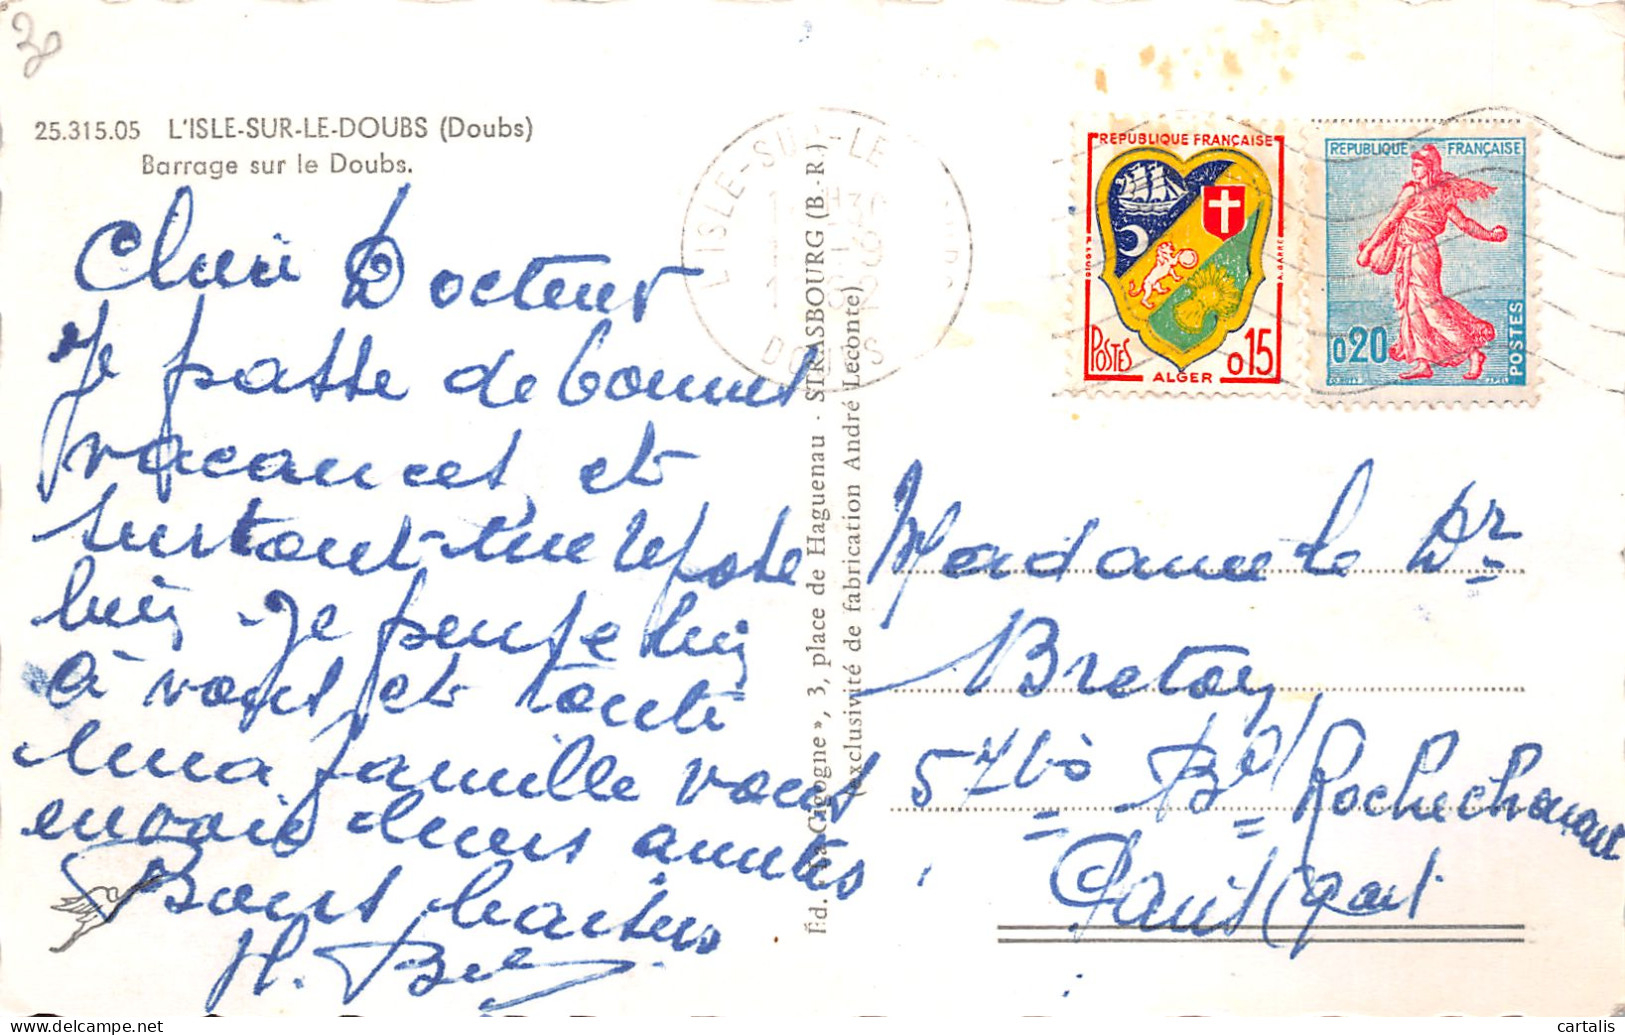 25.315.05 L'ISLE-SUR-LE-DOUBS (Doubs)
Barrage sur le Doubs.
Docteur
Je passe de bonnes
vacances et
surtout me repose
bien Je pense bien
à vous et toute
ma famille vous
envoie leurs amitiés
Bons baisers
H.
Éd. "La Cigogne", 3, place de Haguenau · STRASBOURG (B.-R.)
(exclusivité de fabrication André Leconte)
L'ISLE-SUR-LE
DOUBS
RÉPUBLIQUE FRANÇAISE
POSTES
ALGER
0,15
REPUBLIQUE FRANÇAISE
0,20
POSTES
Madame le Dr
57bis Bd Rochechouart
Paris
cartalis
delcampe.net